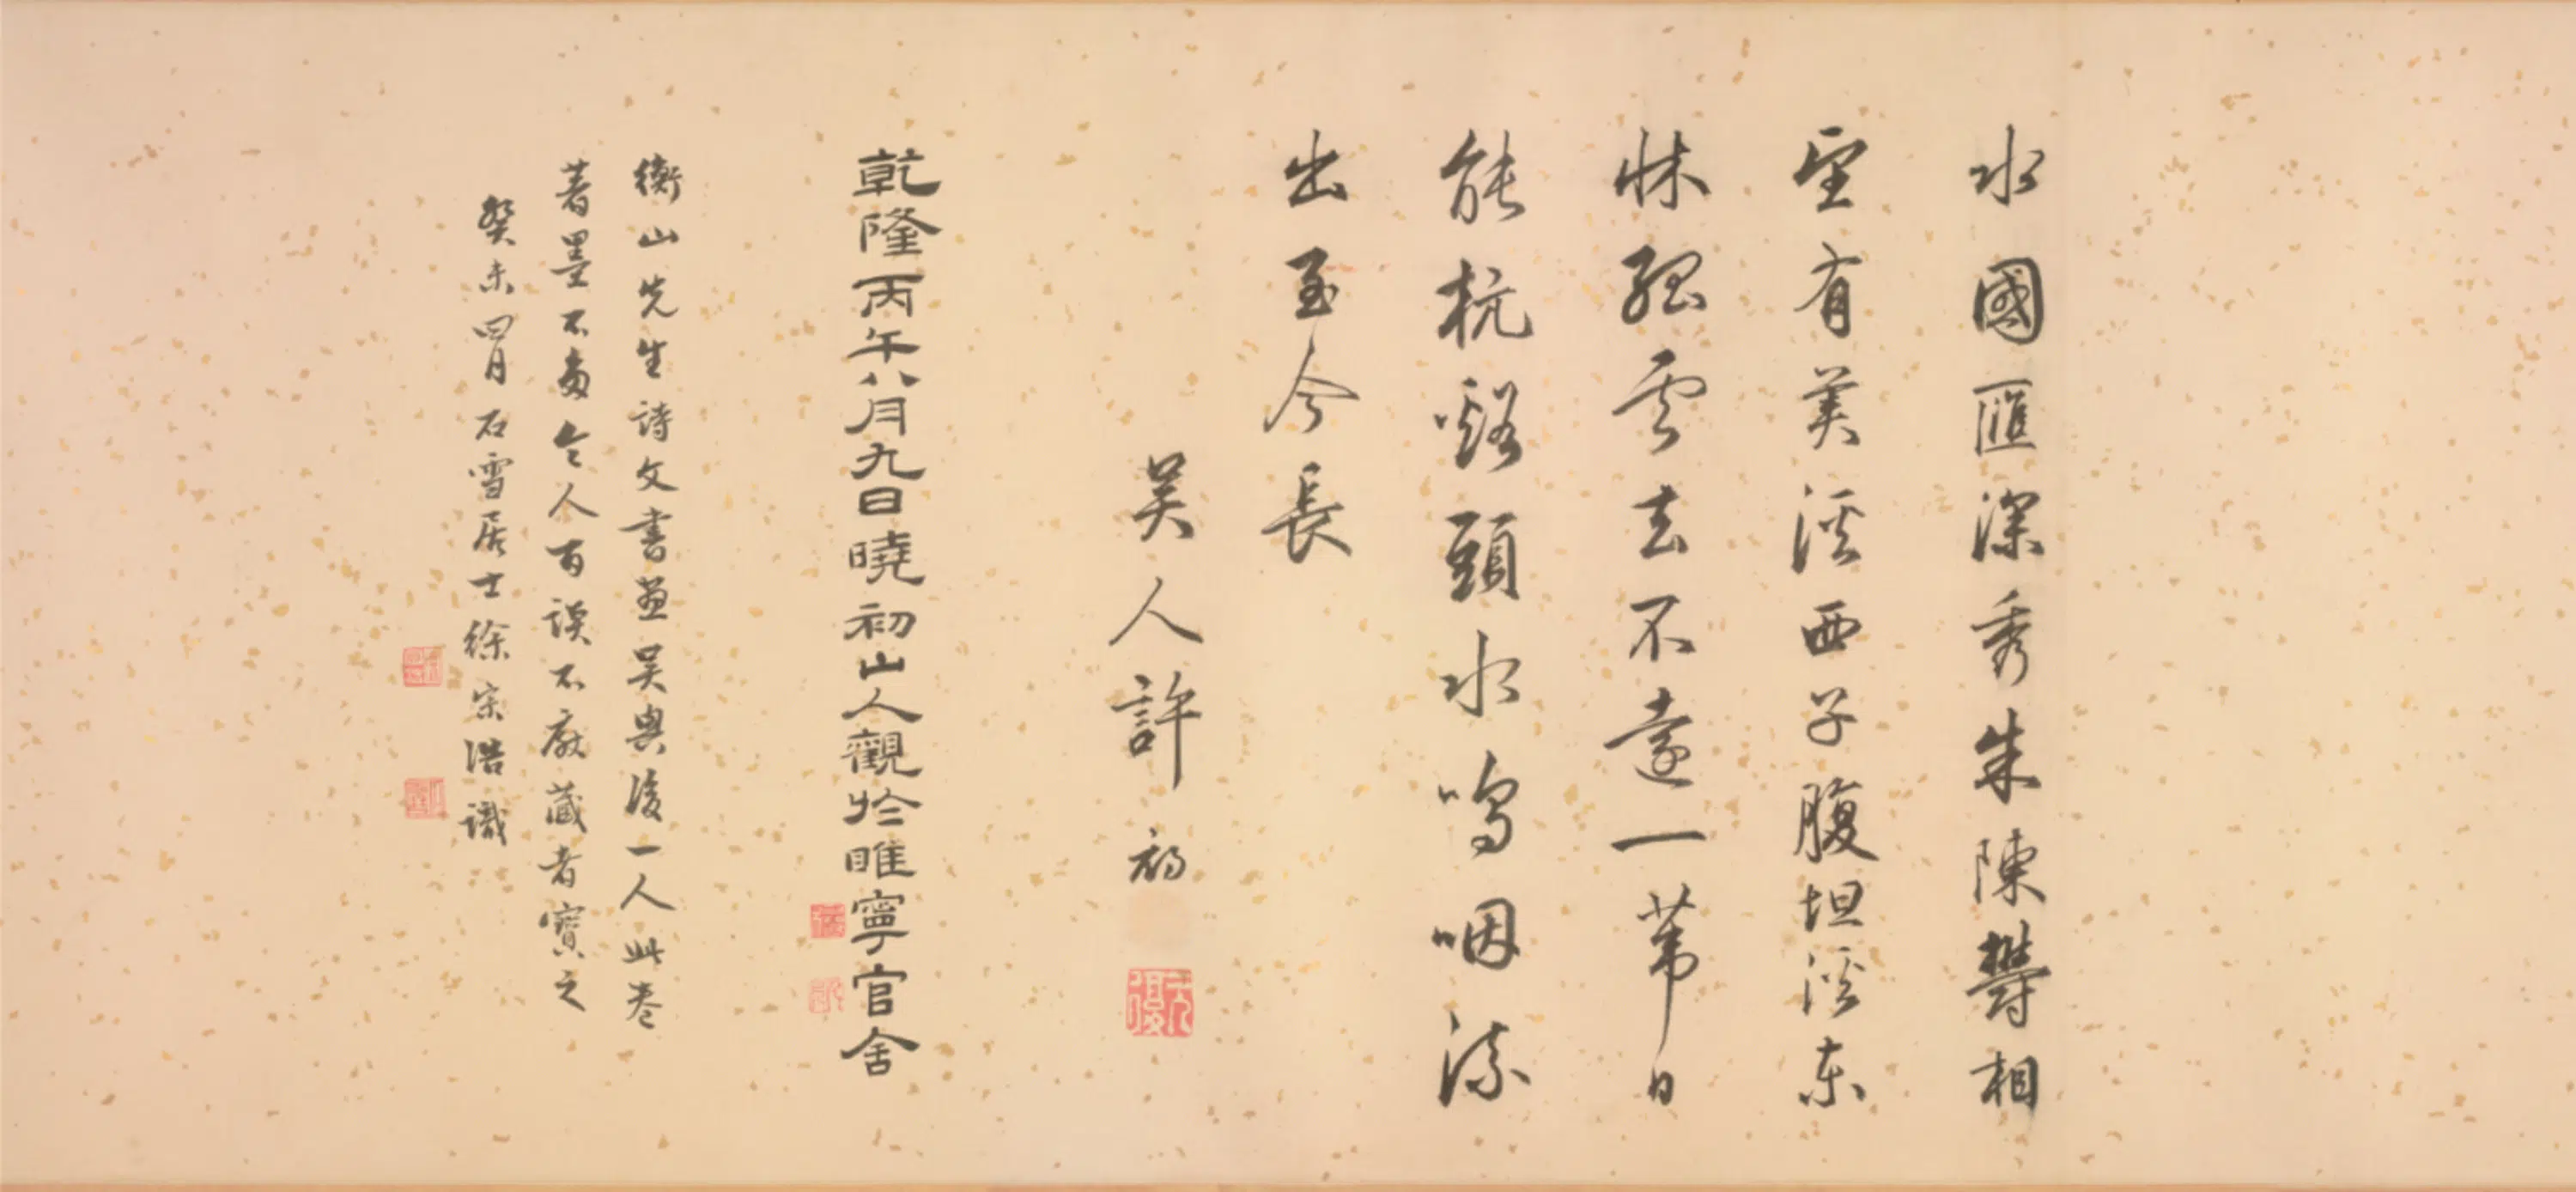 水國匯深秀朱陳欝相
望有美溪西子腹坦溪東
牀孤雲去不遠一葦日
能杭谿頭水鳴咽流
出至今長
吳人許初
乾隆丙午八月九日曉初山人觀於睢寧官舍
衡山先生詩文書畫吳興後一人此卷
著墨不多令人百讀不厭藏者寶之
癸未四月石雪居士徐宗浩識
元復